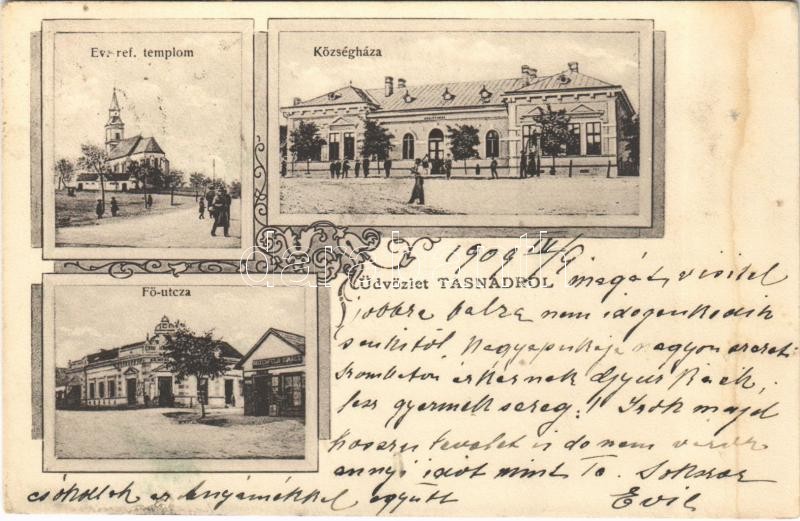 Ev. ref. templom
Községháza
Fő-utcza
Üdvözlet TASNÁDRÓL
1909 IV/9
magát, visitel
jobbra balra nem idegenkedik
senkitől. Nagyapukája nagyon szereti
Szombaton érkeznek Gyuri
lesz gyermek sereg! Írok majd
hosszu levelet is de nem
annyi időt mint Te. Sokszor
csókollak az anyámékkal együtt